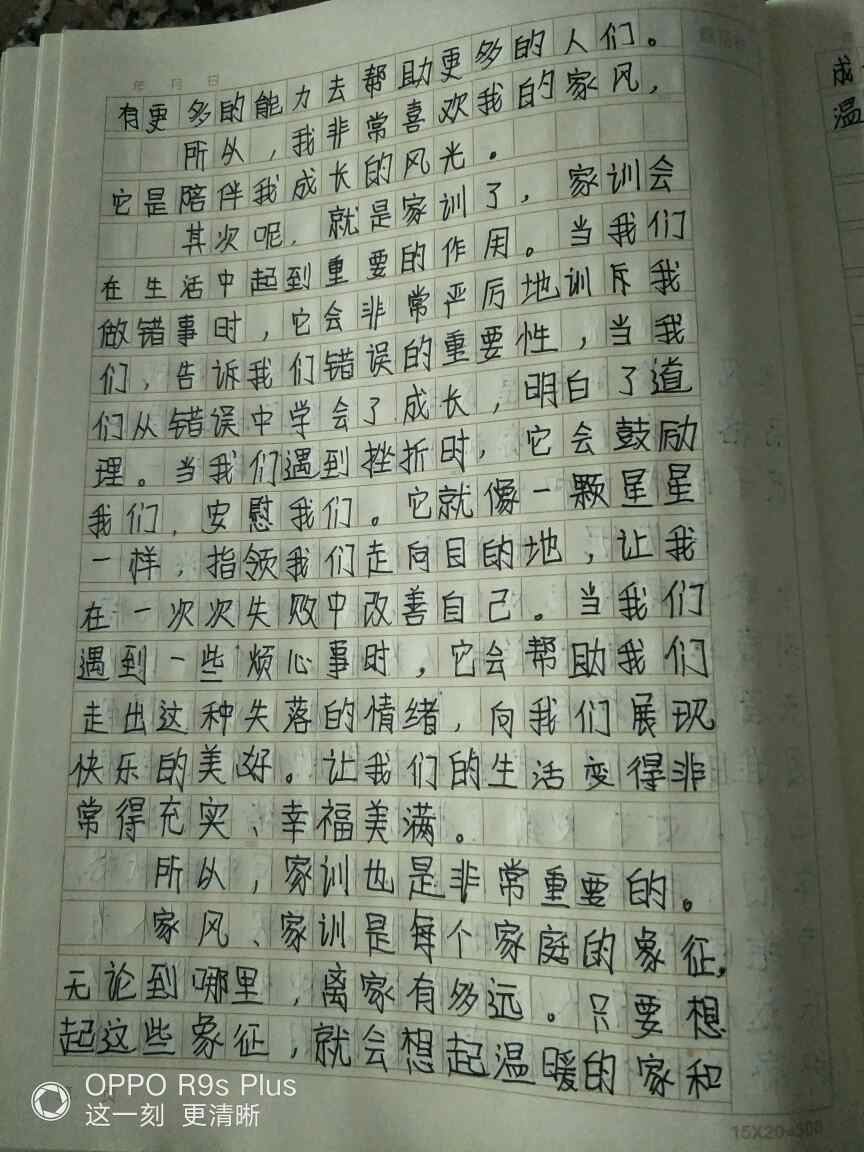 年 月 日
有更多的能力去帮助更多的人们。
所以，我非常喜欢我的家风，
它是陪伴我成长的风光。
其次呢，就是家训了，家训会
在生活中起到重要的作用。当我们
做错事时，它会非常严厉地训斥我
们，告诉我们错误的重要性，当我
们从错误中学会了成长，明白了道
理。当我们遇到挫折时，它会鼓励
我们，安慰我们。它就像一颗星星
一样，指领我们走向目的地，让我
在一次次失败中改善自己。当我们
遇到一些烦心事时，它会帮助我们
走出这种失落的情绪，向我们展现
快乐的美好。让我们的生活变得非
常得充实、幸福美满。
所以，家训也是非常重要的。
家风、家训是每个家庭的象征，
无论到哪里，离家有多远。只要想
起这些象征，就会想起温暖的家和
15X20=300
成
温
OPPO R9s Plus
这一刻 更清晰